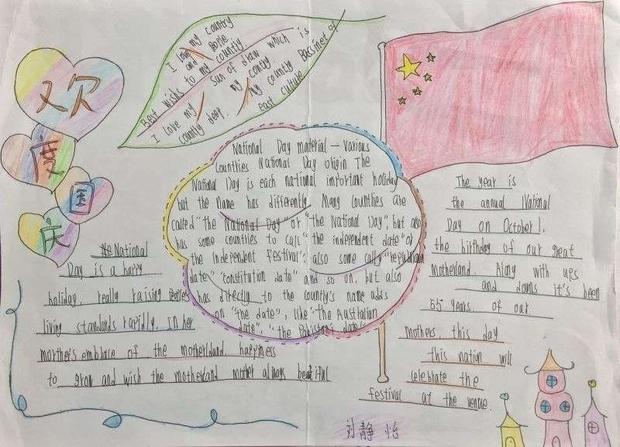 欢
度
国
庆
I love my country
and
to my country
sun of draw which is
Best wishs
I love my
my country
my county
county deep.
east culture
National Day material - various
Countries National Day origin The
National Day is each national important holiday
but the name has differently Many countries are
called "the National Day" or "the National Day", but also
has some countries to call "the independent date" or
the Independent Festival" also some call "republican
date" "constitution date" and so on, but also
has directly to the country's name adds
on "the date", like "the Australian
date", "the Pakistani date"
The year is
the annual National
Day on October 1.
the birthday of our great
motherland. Along with ups
and downs it's been
55 years of our
mothers this day
this nation will
celebrate the
festival at the venue.
National
Day is a happy
holiday, really raising
living standards rapidly. In her
mother's embrace of the motherland happiness
to grow and wish the motherland mother always
刘静怡